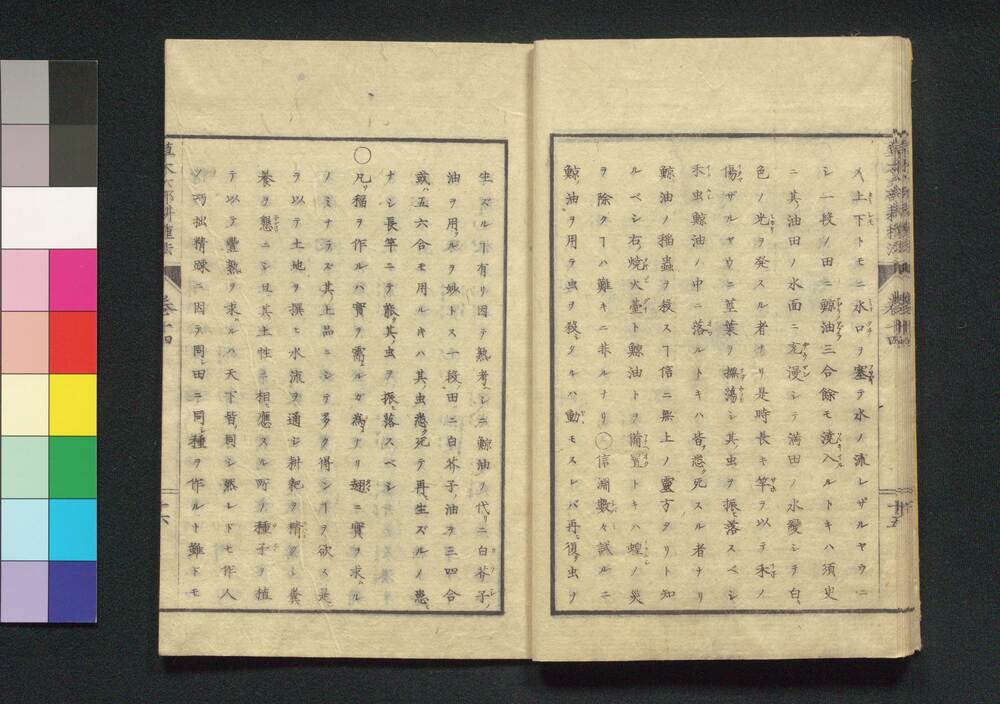 メ上下トモニ水口ヲ塞テ水ノ流レザルヤウニ
シ一段ノ田ニ鯨油三合餘モ澆入ルトキハ須臾
ニ其油田ノ水面ニ充漫シテ満田ノ水變シテ白
色ノ光ヲ発スル者ナリ是時長キ竿ヲ以テ禾ノ
傷ザルヤウニ莖葉ヲ撫蕩シ其虫ヲ振落スベシ
禾虫鯨油ノ中ニ落ルトキハ皆悉死スル者ナリ
鯨油ノ稲蟲ヲ殺スヿ信ニ無上ノ靈方タリト知
ルベシ右焼火臺ト鯨油トヲ備置トキハ蝗ノ災
ヲ除クヿハ難キニ非ルナリ〇信淵數々試ルニ
鯨油ヲ用テ虫ヲ殺シタルハ動モスレバ再復虫ヲ
生ズルヿ有リ因テ熟考シニ鯨油ノ代リニ白芥子ノ
油ヲ用ルヲ妙トス一段田ニ白芥子油ヲ三四合
或ハ五六合モ用ルキハ其虫悉死テ再生ズルノ患
ナシ長竿ニテ能其虫ヲ振落スベシ
〇凡稲ヲ作ルハ實ヲ需ルガ為ナリ翅ニ實ヲ求ル
ノミナラズ其上品ニシテ多ク得ンヿヲ欲ス是
ヲ以テ土地ヲ撰ヒ水流ヲ通ジ耕耙ヲ精クシ糞
養ヲ懇ニシ且其土性ニ相應スル所ノ種子ヲ植
テ以テ豐熟ヲ求ルハ天下皆同シ然レドモ作人
ノ巧拙精疎ニ因テ同田ニ同種ヲ作ルト難ドモ
草木六部耕種法
卷十四
十六
十五